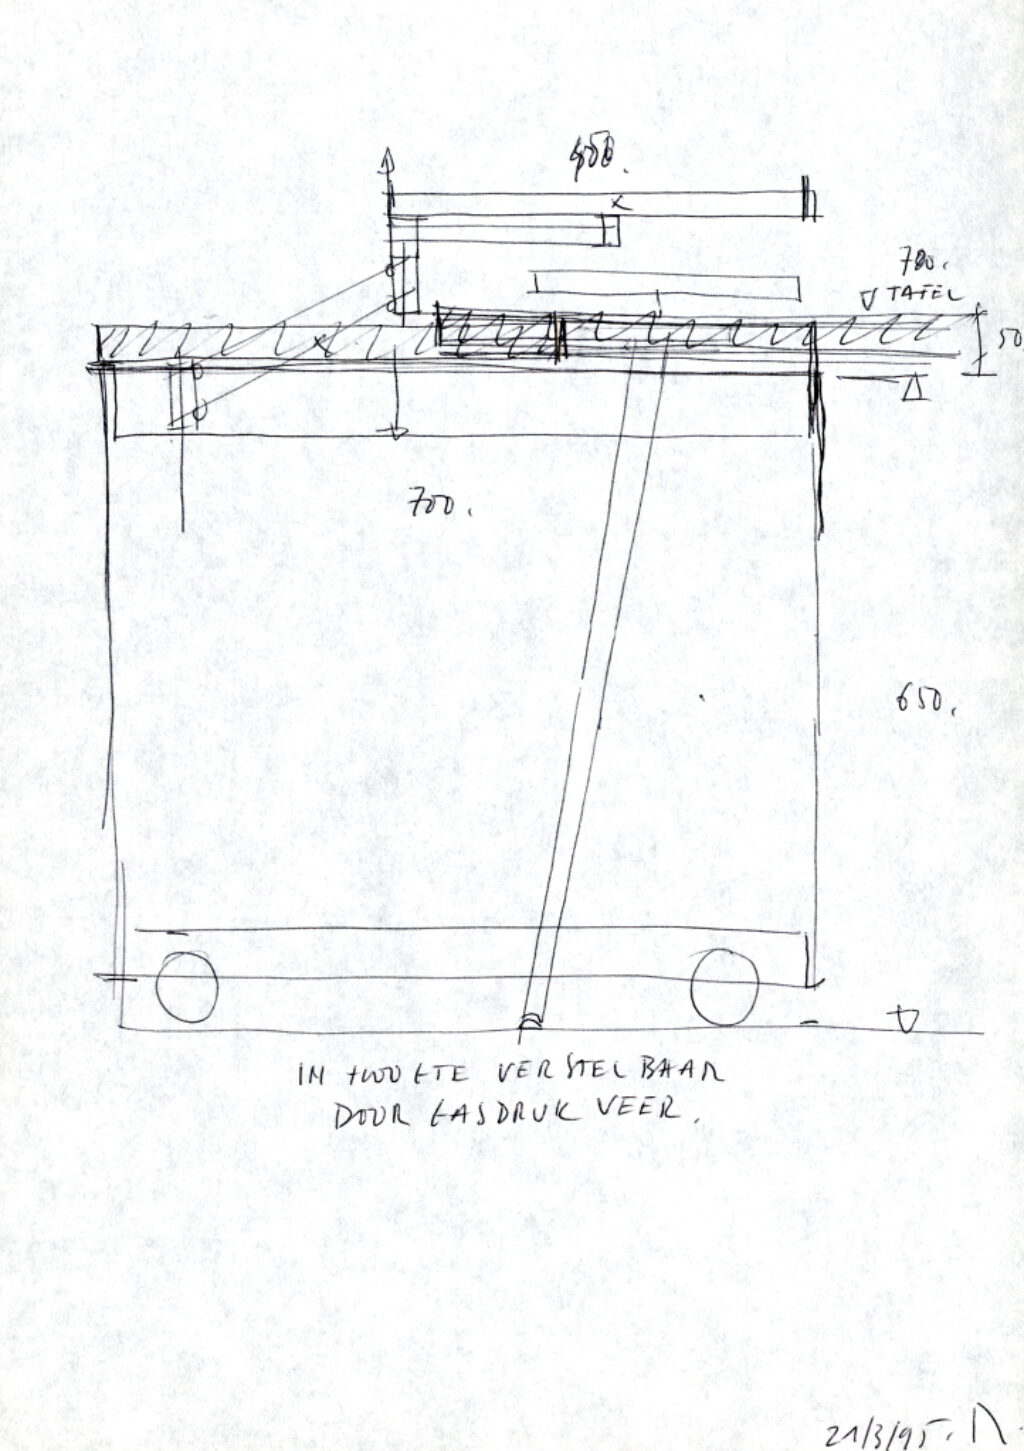 700.
TAFEL
50
700.
650.
IN HOOGTE VERSTELBAAR
DOOR GASDRUK VEER.
21/3/95.